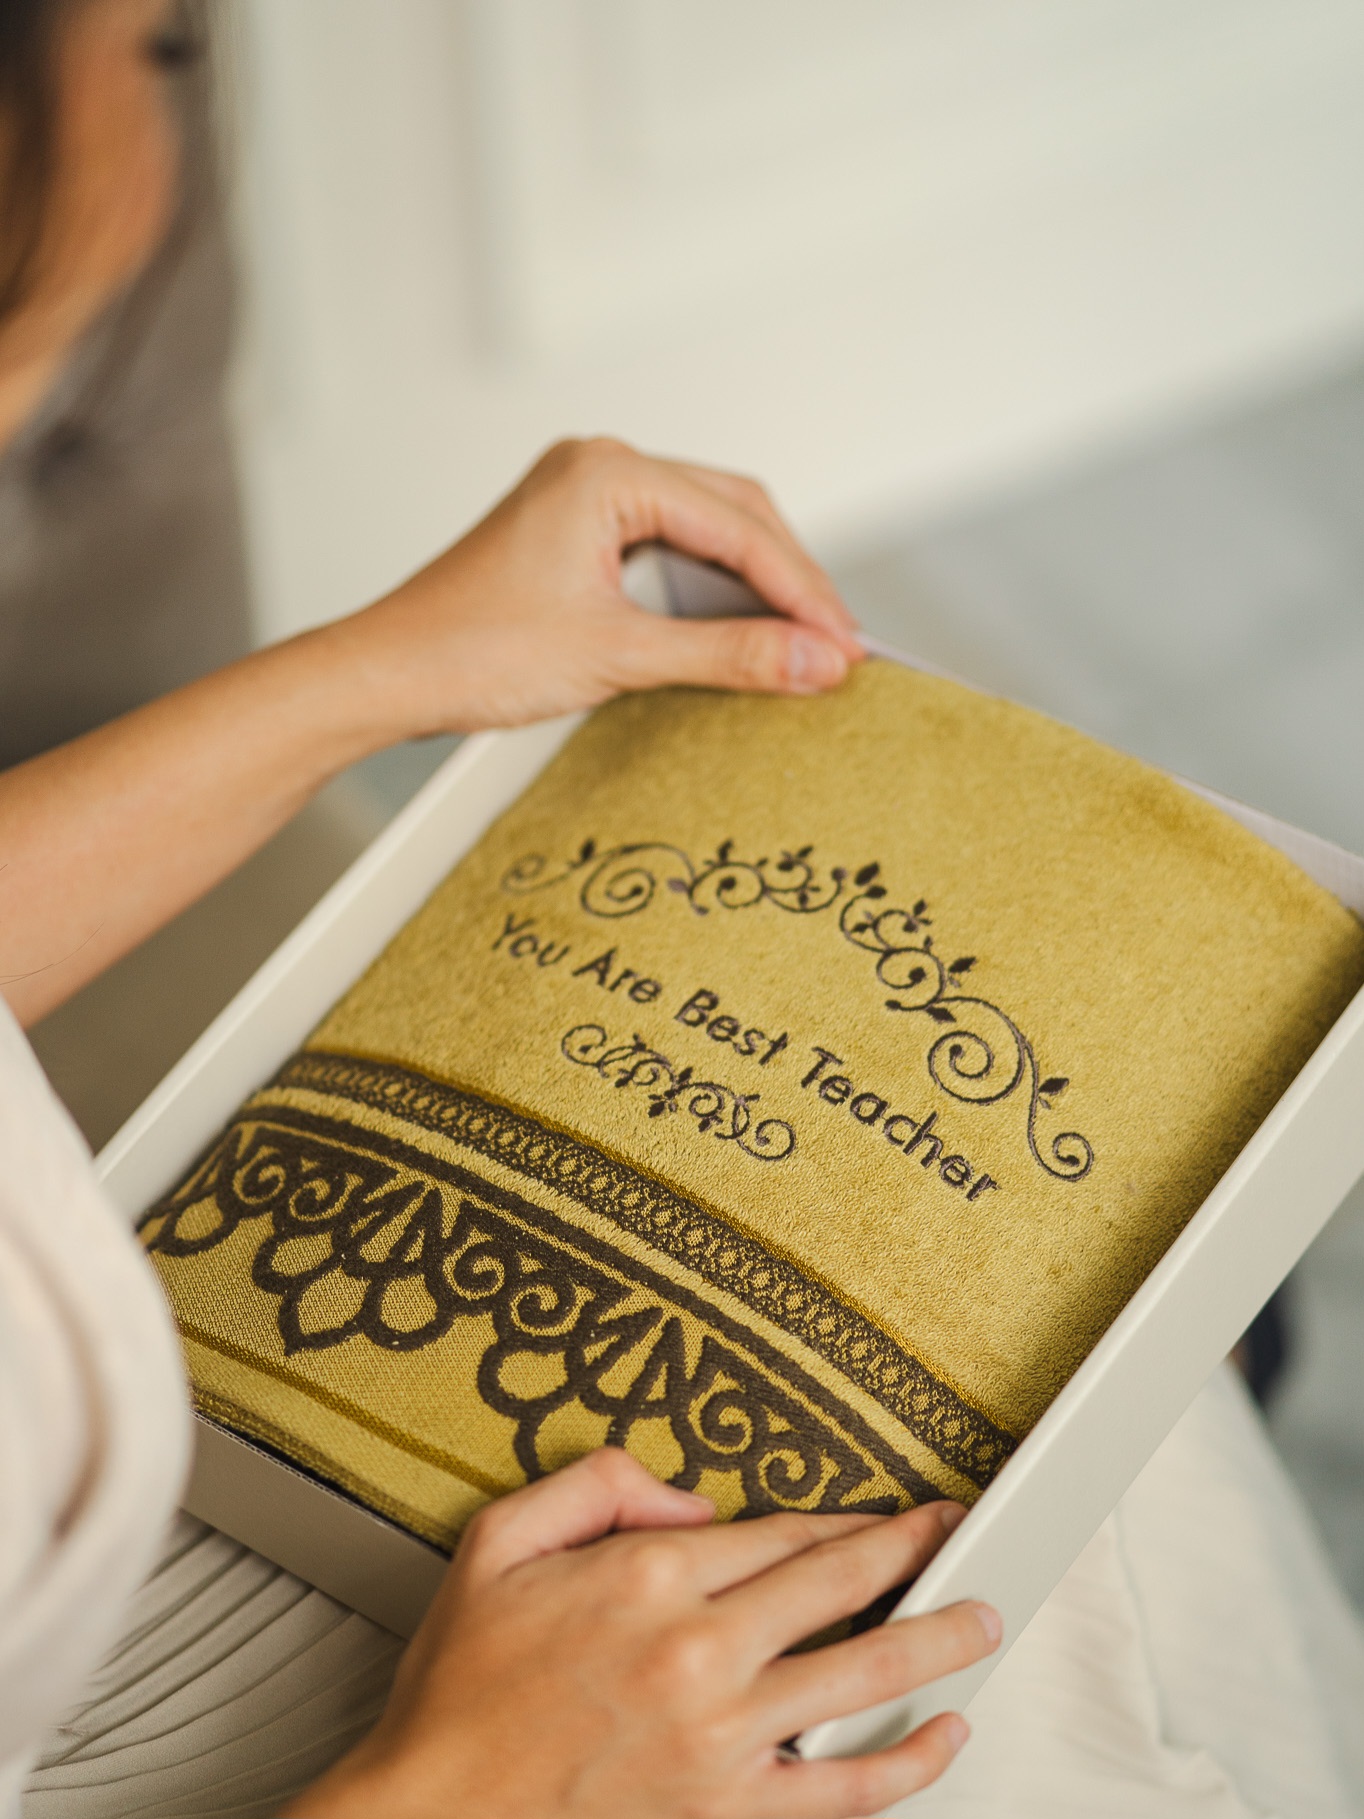 You Are Best Teacher